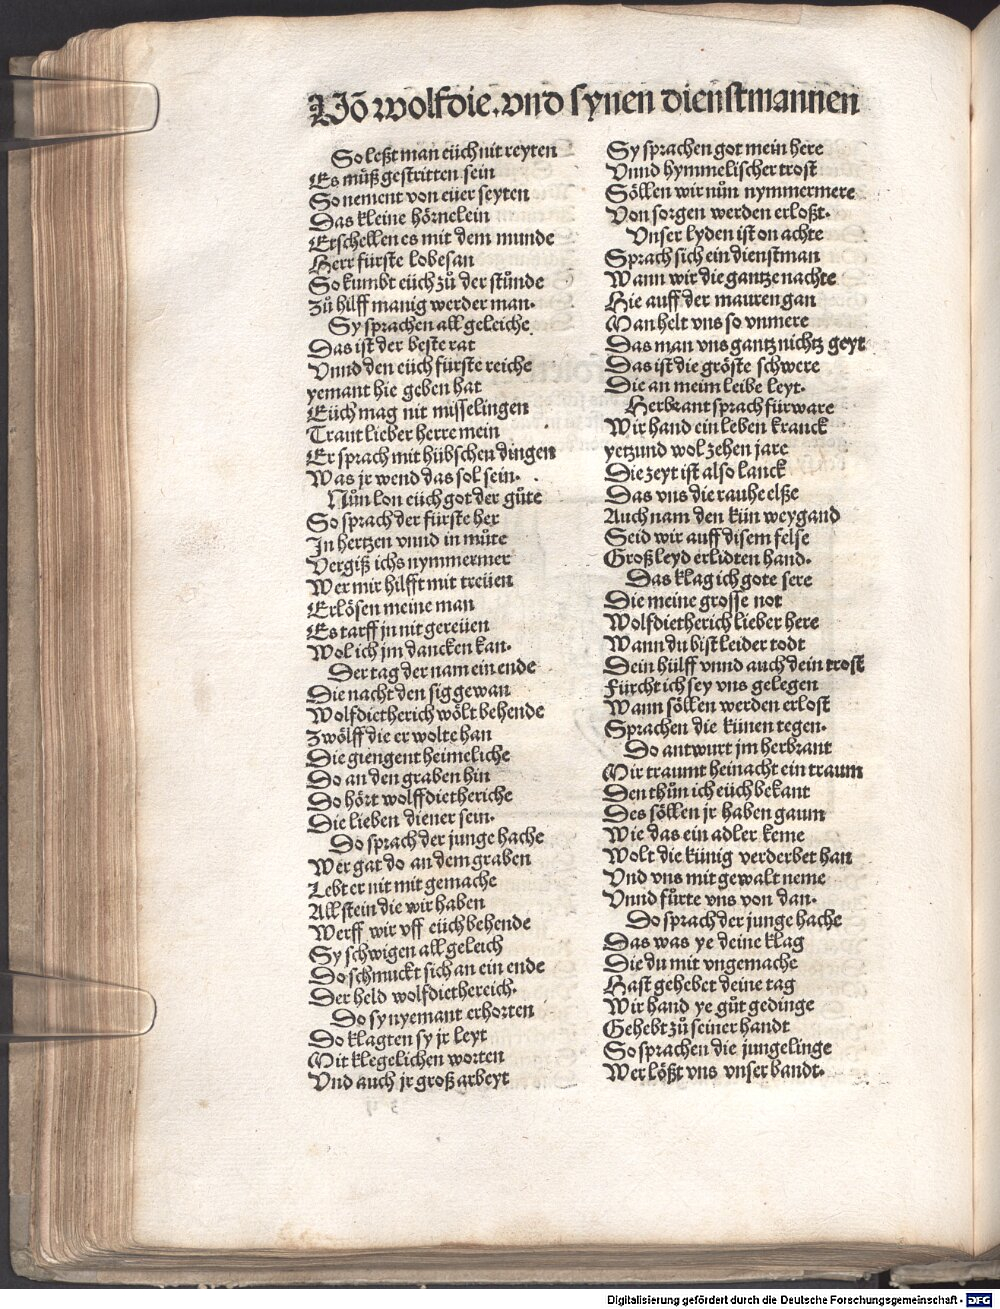 Uõ wolfdie. vnd synen dienstmannen
So leßt man eüch nit reyten
Es můß gestritten sein
So nement von eüer seyten
Das kleine hörnelein
Erschellen es mit dem munde
Herr fürste lobesan
So kumbt eüch zů der stůnde
Zů hilff manig werder man.
Sy sprachen all geleiche
Das ist der beste rat
Vnnd den eüch fürste reiche
yemant hie geben hat
Eüch mag nit misselingen
Traut lieber herre mein
Er sprach mit hübschen dingen
Was jr wend das sol sein.
Nůn lon eüch got der gůte
So sprach der fürste her
In hertzen vnnd in můte
Vergiß ichs nymmermer
Wer mir hilfft mit treüen
Erlösen meine man
Es tarff jn nit gereüen
Wol ich jm dancken kan.
Der tag der nam ein ende
Die nacht den sig gewan
Wolfdietherich wölt behende
Zwölff die er wolte han
Die giengent heimeliche
Do an den graben hin
Do hört wolffdietheriche
Die lieben diener sein.
Do sprach der junge hache
Wer gat do an dem graben
Lebt er nit mit gemache
All stein die wir haben
Werff wir vff eüch behende
Sy schwigen all geleich
Do schmuckt sich an ein ende
Der held wolfdiethereich.
Do sy nyemant erhorten
Do klagten sy jr leyt
Mit klegelichen worten
Vnd auch jr groß arbeyt
Sy sprachen got mein here
Vnnd hymmelischer trost
Söllen wir nůn nymmermere
Von sorgen werden erloßt.
Vnser lyden ist on achte
Sprach sich ein dienstman
Wann wir die gantze nachte
Hie auff der mauren gan
Man helt vns so vnmere
Das man vns gantz nichtz geyt
Das ist die gröste schwere
Die an meim leibe leyt.
Herbrant sprach fürware
Wir hand ein leben kranck
yetzund wol zehen jare
Die zeyt ist also lanck
Das vns die rauhe elße
Auch nam den kün weygand
Seid wir auff disem felse
Groß leyd erlidten hand.
Das klag ich gote sere
Die meine grosse not
Wolfdietherich lieber here
Wann du bist leider todt
Dein hülff vnnd auch dein trost
Fürcht ich sey vns gelegen
Wann söllen werden erlost
Sprachen die künen tegen.
Do antwurt jm herbrant
Mir traumt heinacht ein traum
Den thůn ich eüch bekant
Des söllen jr haben gaum
Wie das ein adler keme
Wolt die künig verderbet han
Vnd vns mit gewalt neme
Vnnd fůrte vns von dan.
Do sprach der junge hache
Das was ye deine klag
Die du mit vngemache
Hast gehebet deine tag
Wir hand ye gůt gedinge
Gehebt zů seiner handt
So sprachen die jungelinge
Wer lößt vns vnser bandt.
Digitalisierung gefördert durch die Deutsche Forschungsgemeinschaft - DFG